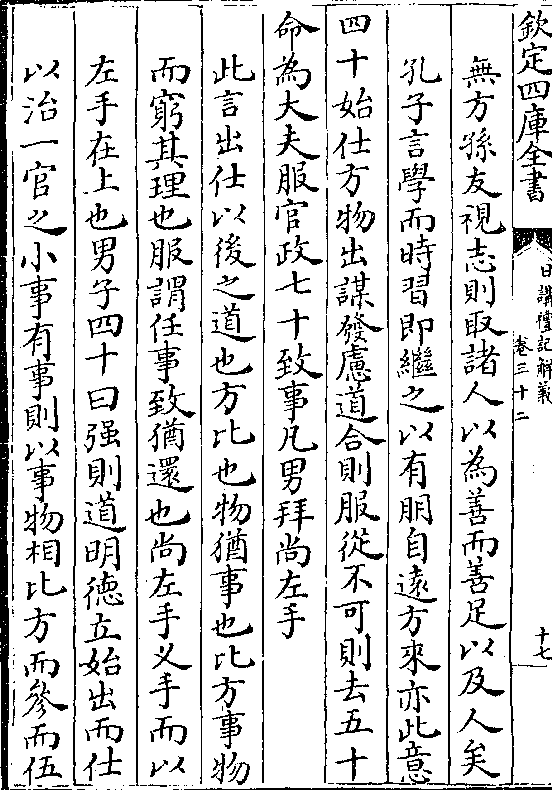 欽定四庫全書
日講禮記解義
卷三十二
十七
無方孫友視志則取諸人以為善而善足以及人矣
孔子言學而時習即繼之以有朋自遠方來亦此意
四十始仕方物出謀發慮道合則服從不可則去五十
命為大夫服官政七十致事凡男拜尚左手
此言出仕以後之道也方比也物猶事也比方事物
而窮其理也服謂任事致猶還也尚左手义手而以
左手在上也男子四十曰强則道明德立始出而仕
以治一官之小事有事則以事物相比方而參而伍